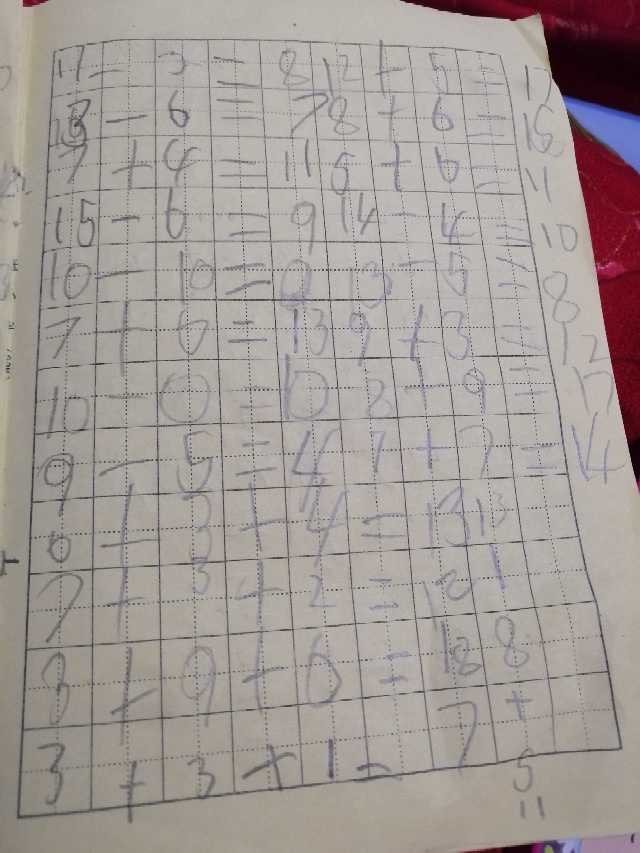 11 - 3 = 8 12 + 5 = 17
13 - 6 = 7 8 + 6 = 15
7 + 4 = 11 5 + 6 = 11
15 - 6 = 9 14 - 4 = 10
10 - 10 = 0 13 - 5 = 8
7 + 6 = 13 9 + 3 = 12
10 - 0 = 10 8 + 9 = 17
9 - 5 = 4 7 + 7 = 14
6 + 3 + 4 = 13 13
7 + 3 + 2 = 12 1
3 + 9 + 6 = 18 8
3 + 3 + 1 = 7 +
5
=